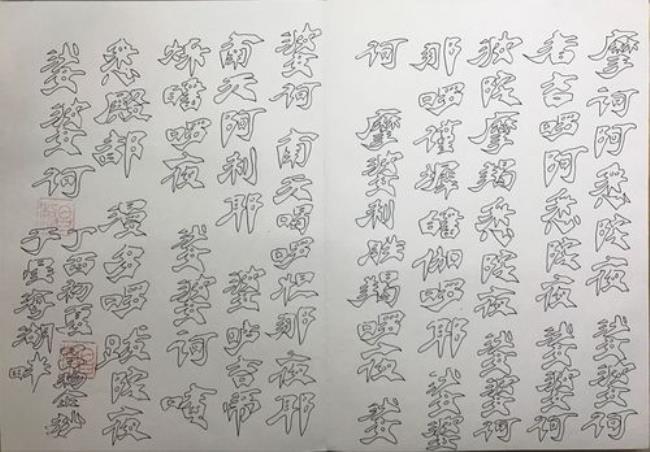 摩訶阿悉陀夜 娑婆訶
者吉囉阿悉陀夜 娑婆訶
波陀摩羯悉陀夜 娑婆訶
那囉謹墀皤伽囉耶 娑婆
訶 摩婆利勝羯囉夜 娑
婆訶 南无喝囉怛那夜耶
南无阿利耶 婆嚧吉帝
爍皤囉夜 娑婆訶 唵
悉殿都 漫多囉 跋陀夜
娑婆訶
丁酉初夏
于星湖畔